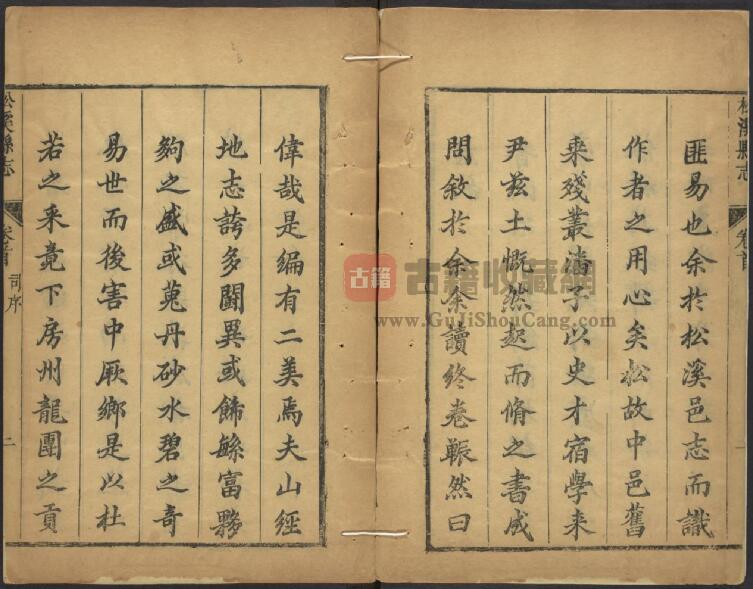 匪易也余於松溪邑志而識
作者之用心矣松故中邑舊
乘殘叢潘子以史才宿學来
尹兹土慨然起而脩之書成
問敘於余余讀終卷冁然曰
松溪縣志
卷首
偉哉是編有二美焉夫山經
地志誇多闘異或飾緐富夥
夠之盛或蒐丹砂水碧之奇
易世而後害中厥鄉是以杜
若之采竟下房州龍團之貢
松溪縣志
卷首
司序
二
古籍
古籍收藏網
www.GuJiShouCang.com